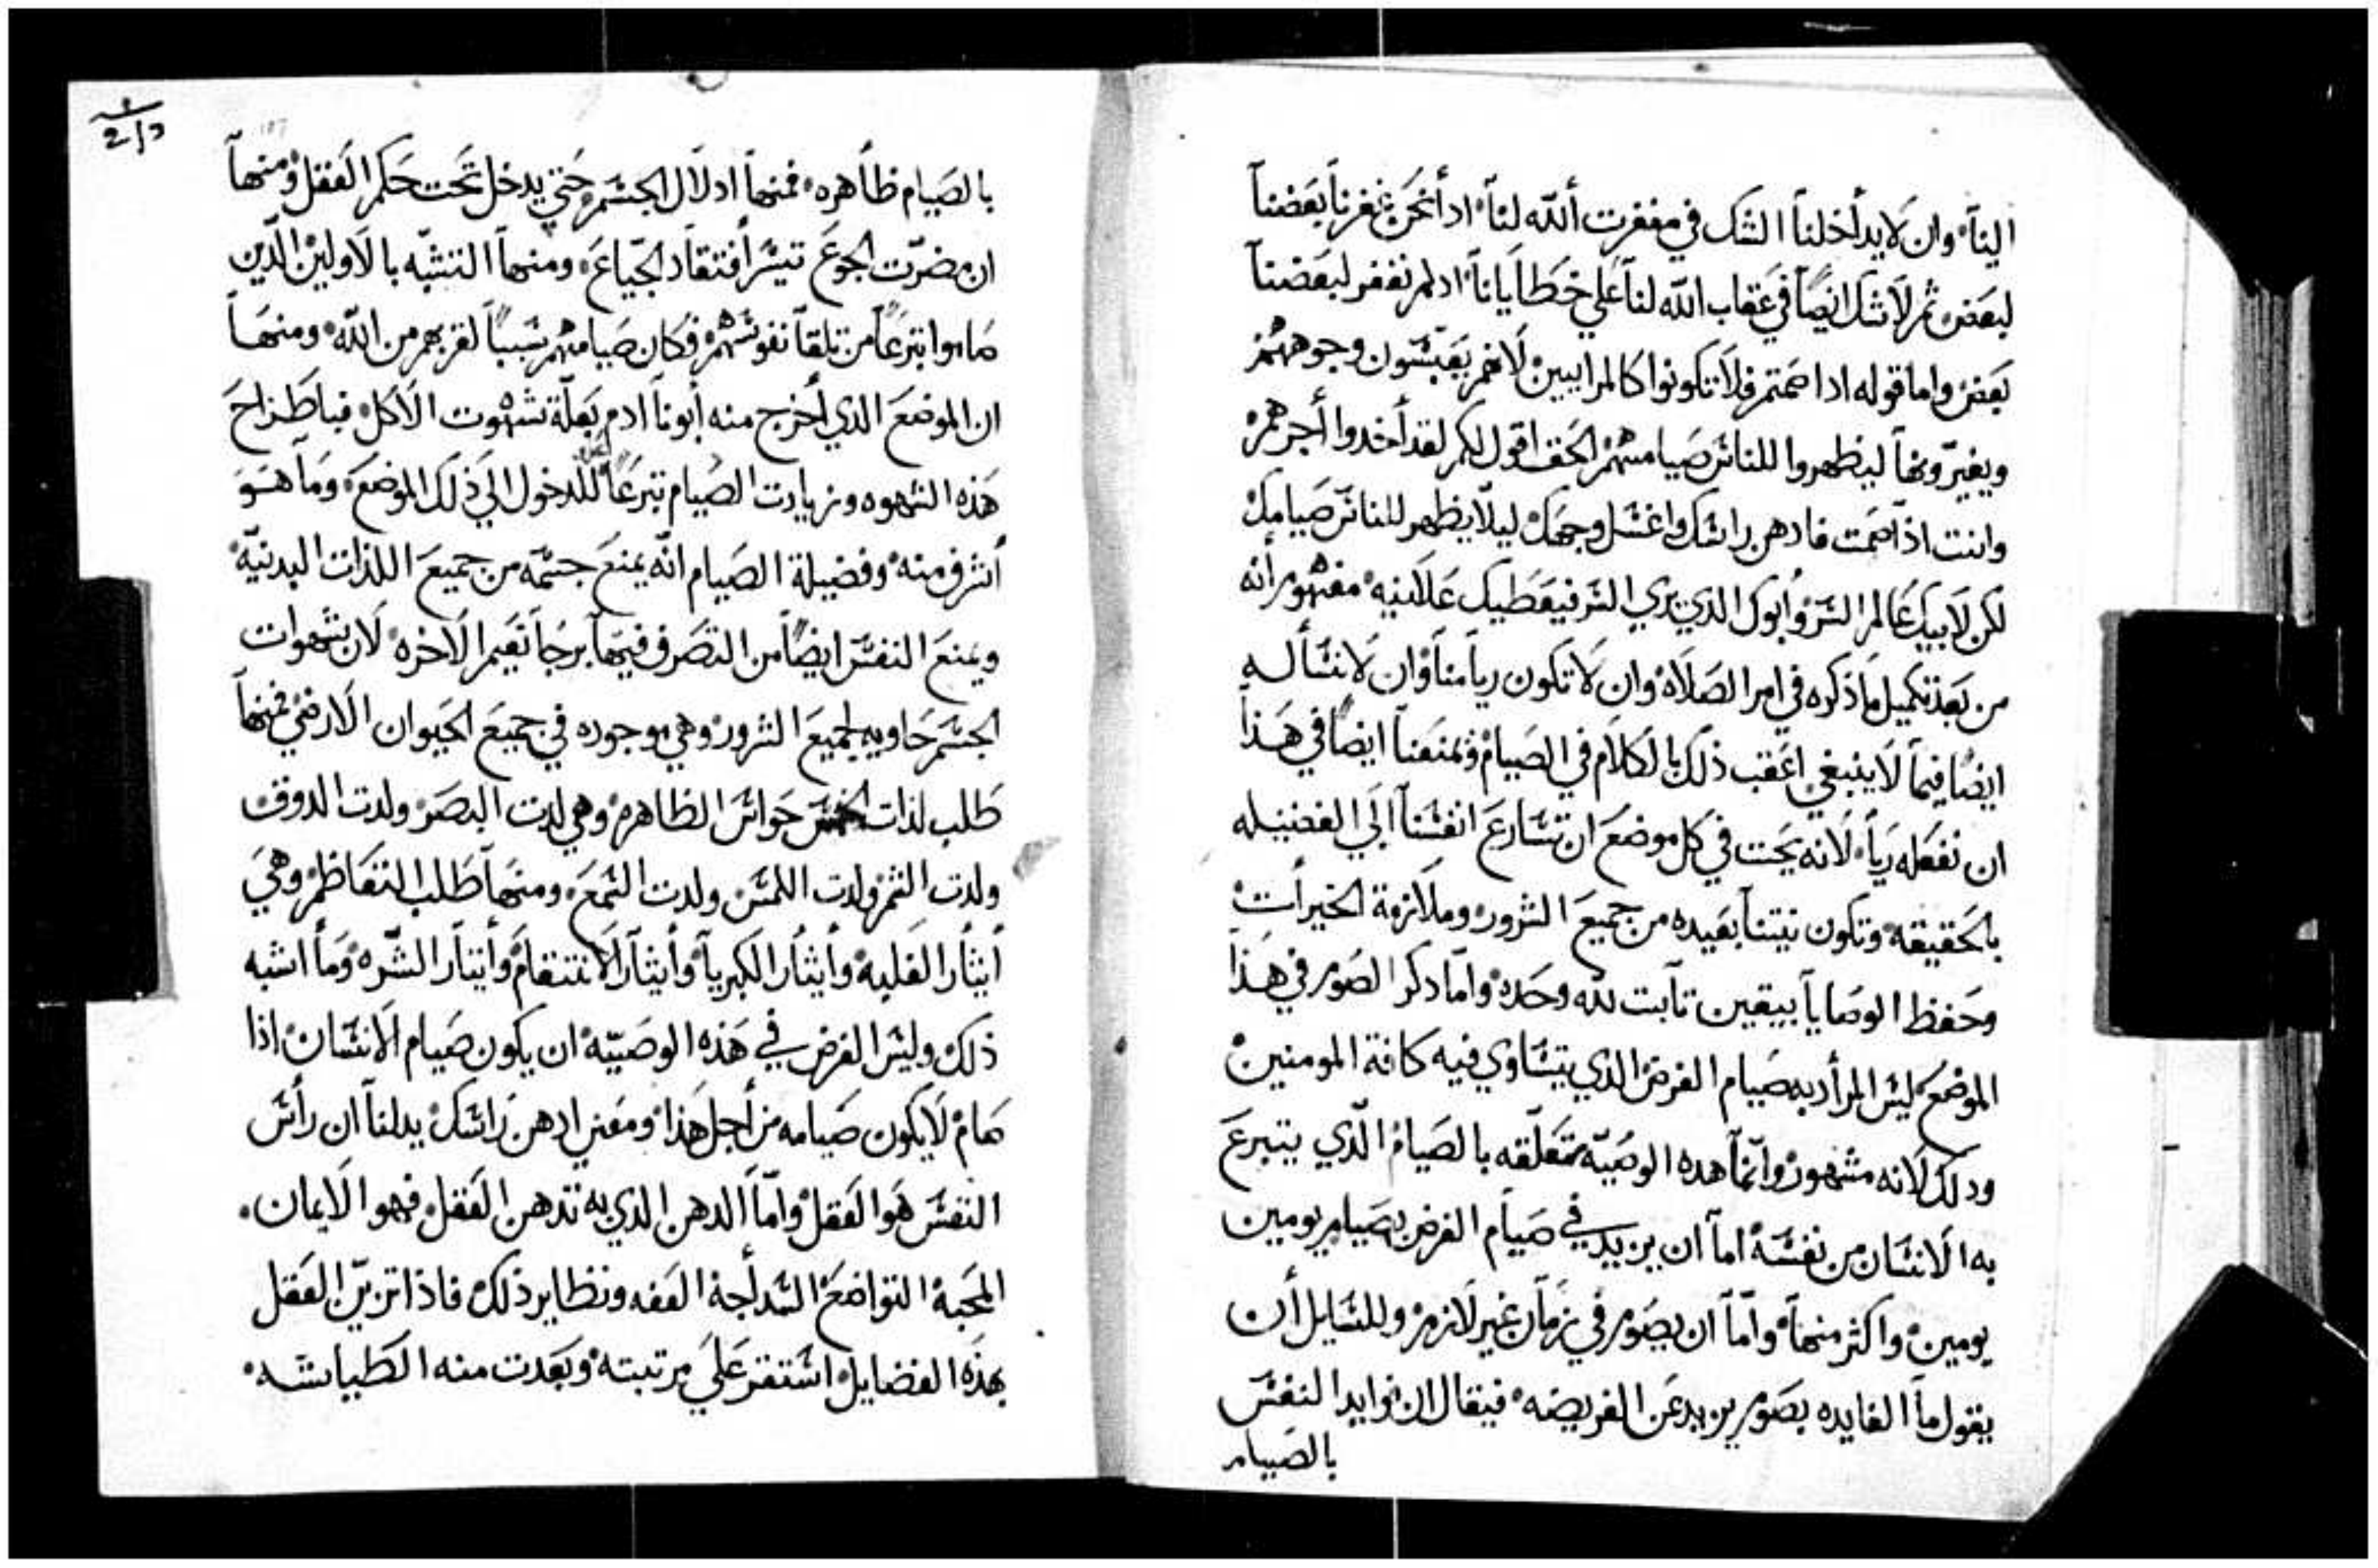 الينا وان لا يداخلنا الشك في مغفرت الله لنا اد انحن غفرنا بعضنا
لبعض ثم لا نشك ايضًا في عقاب الله لنا علي خطايانا اد لم نغفر لبعضنا
بعض واما قوله ادا صمتم فلا تكونوا كالمراييين لانهم يعبسون وجوههم
ويغيرونها ليظهروا للناس صيامهم الحق اقول لكم لقد أخدوا أجرهم
وانت اذا صمت فادهن راسك واغسل وجهك ليلا يظهر للناس صيامك
لكن لابيك عالم السر وأبوك الذي يري السر فيعطيك علانيه مفهوم أنه
من بعد تكميل ما ذكره في امر الصلاه وان لا تكون ريا منا وان لا نسأله
ايضًا فيما لا ينبغي اعقب ذلك بالكلام في الصيام ويمنعنا ايضًا في هذا
ان نفعله رياء لانه يحت في كل موضع ان تسارع انفسنا الي الفضيله
بالحقيقه وتكون نيتنا بعيده من جميع الشرور وملازمة الخيرات
وحفظ الوصايا بيقين تابت لله وحده واما دكر الصوم في هذا
الموضع ليس المراد به صيام الفرض الذي يتساوي فيه كافة المومنين
ودلك لانه مشهور وانما هده الوصيّه متعلقه بالصيام الّذي يتبرع
به الانسان من نفسه اما ان يزيد في صيام الفرض بصيام يومين
يومين واكثر منها واما ان يصوم في زمان غير لازم وللسايل أن
يقول ما الفايده بصوم يزيد عن الفريضه فيقال ان فوايد النفس
بالصيام
بالصيام ظاهره فمنها ادلال الجسم حتي يدخل تحت حكم العقل ومنها
ان مضرّت الجوع تيسر افتقاد الجياع ومنها التشبّه بالاولين الّذين
صاموا تبرعًا من تلقا نفوسهم فكان صيامهم سببًا لقربهم من الله ومنها
ان الموضع الذي أخرج منه أبونا ادم بعلّة شهوت الاكل فباطراح
هذه الشهوه وزيادت الصيام تبرعًا للدخول الي ذلك الموضع وما هو
أشرف منه وفضيلة الصيام انّه يمنع جسمه من جميع اللذات البدنيّه
ويمنع النفس ايضًا من التصرف فيها برجا نعيم الاخره لان شهوات
الجسم حاويه لجميع الشرور وهي موجوده في جميع الحيوان الارضي فمنها
طلب لذات الخمس حواس الظاهره وهي لدت البصر ولدت الدوق
ولدت الشم ولدت اللمس ولدت السمع ومنها طلب التعاظم وهي
أيثار الغلبه وأيثار الكبريا وأيثار الانتقام وأيثار الشّره وما اشبه
ذلك وليس الغرض في هذه الوصيّه ان يكون صيام الانسان اذا
صام لا يكون صيامه من أجل هذا ومعني ادهن راسك يدلنا ان رأس
النفس هو العقل واما الدهن الذي به تدهن العقل فهو الايمان
المحبة التواضع السداجة العفه ونظاير ذلك فاذا تزيّن العقل
بهذه الفضايل استقر علي مرتبته وبعدت منه الطياشه